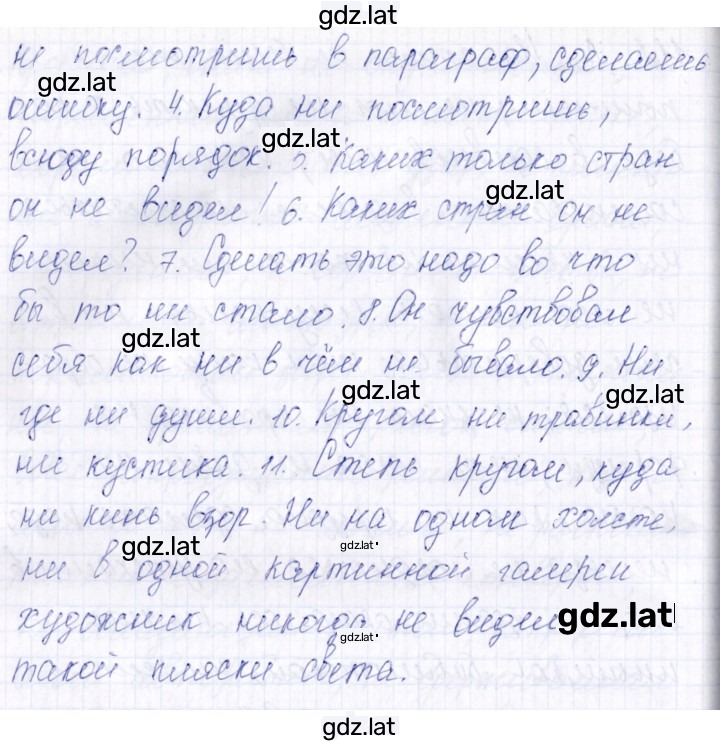 gdz.lat
не посмотришь в параграф, сделаешь
gdz.lat
ошибку. 4. Куда ни посмотришь,
gdz.lat
всюду порядок. 5. Каких только стран
gdz.lat
он не видел! 6. Каких стран он не
видел? 7. Сделать это надо во что
gdz.lat
бы то ни стало. 8. Он чувствовал
gdz.lat
себя как ни в чём не бывало. 9. Ни
gdz.lat gdz.lat
где ни души. 10. Кругом ни травинки,
ни кустика. 11. Степь кругом, куда
gdz.lat
ни кинь взор. Ни на одном холсте,
gdz.lat gdz.lat
ни в одной картинной галереи
художник никогда не видел
gdz.lat
gdz.lat
такой пляски света.
gdz.lat